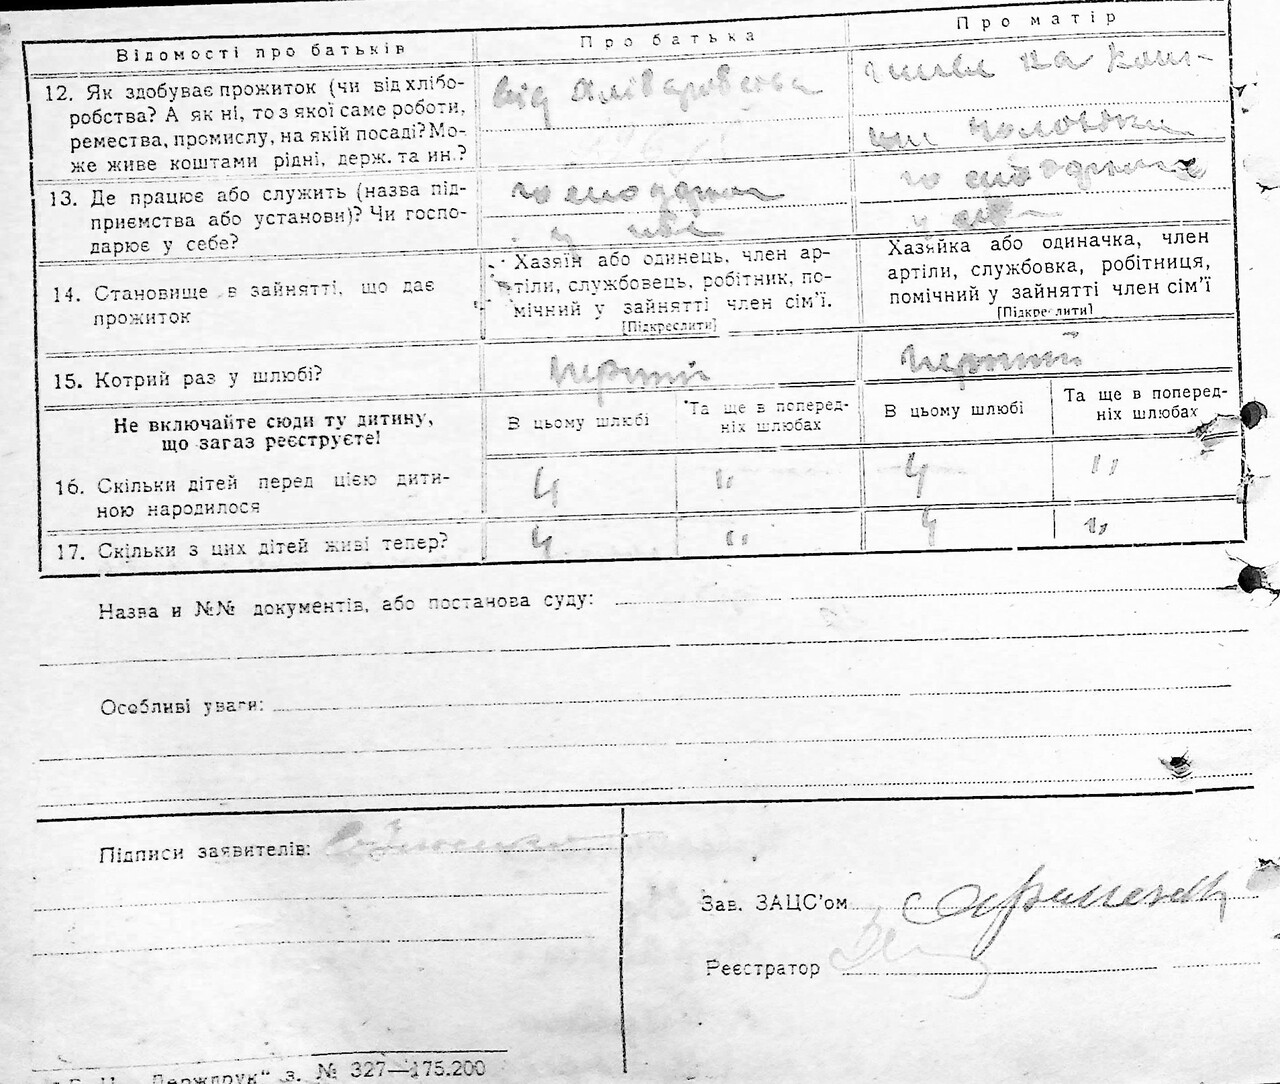 Відомості про батьків
Про батька
Про матір
12. Як здобуває прожиток (чи від хлібо-
робства? А як ні, то з якої саме роботи,
ремества, промислу, на якій посаді? Мо-
же живе коштами рідні, держ. та ин.?
від хліборобства
на кош-
чоловіка
13. Де працює або служить (назва під-
приємства або установи)? Чи госпо-
дарює у себе?
14. Становище в зайнятті, що дає
прожиток
Хазяїн або одинець, член ар-
тіли, службовець, робітник, по-
мічний у зайнятті член сім'ї.
[Підкреслити]
Хазяйка або одиначка, член
артіли, службовка, робітниця,
помічний у зайнятті член сім'ї
[Підкреслити]
15. Котрий раз у шлюбі?
перший
перший
Не включайте сюди ту дитину,
що загаз реєструєте!
В цьому шлюбі
Та ще в поперед-
ніх шлюбах
В цьому шлюбі
Та ще в поперед-
ніх шлюбах
16. Скільки дітей перед цією дити-
ною народилося
4 " 4 "
17. Скільки з цих дітей живі тепер?
4 " 4 "
Назва и №№ документів, або постанова суду:
Особливі уваги:
Підписи заявителів:
Зав. ЗАЦС'ом
Реєстратор
Держдрук" з. № 327—175.200